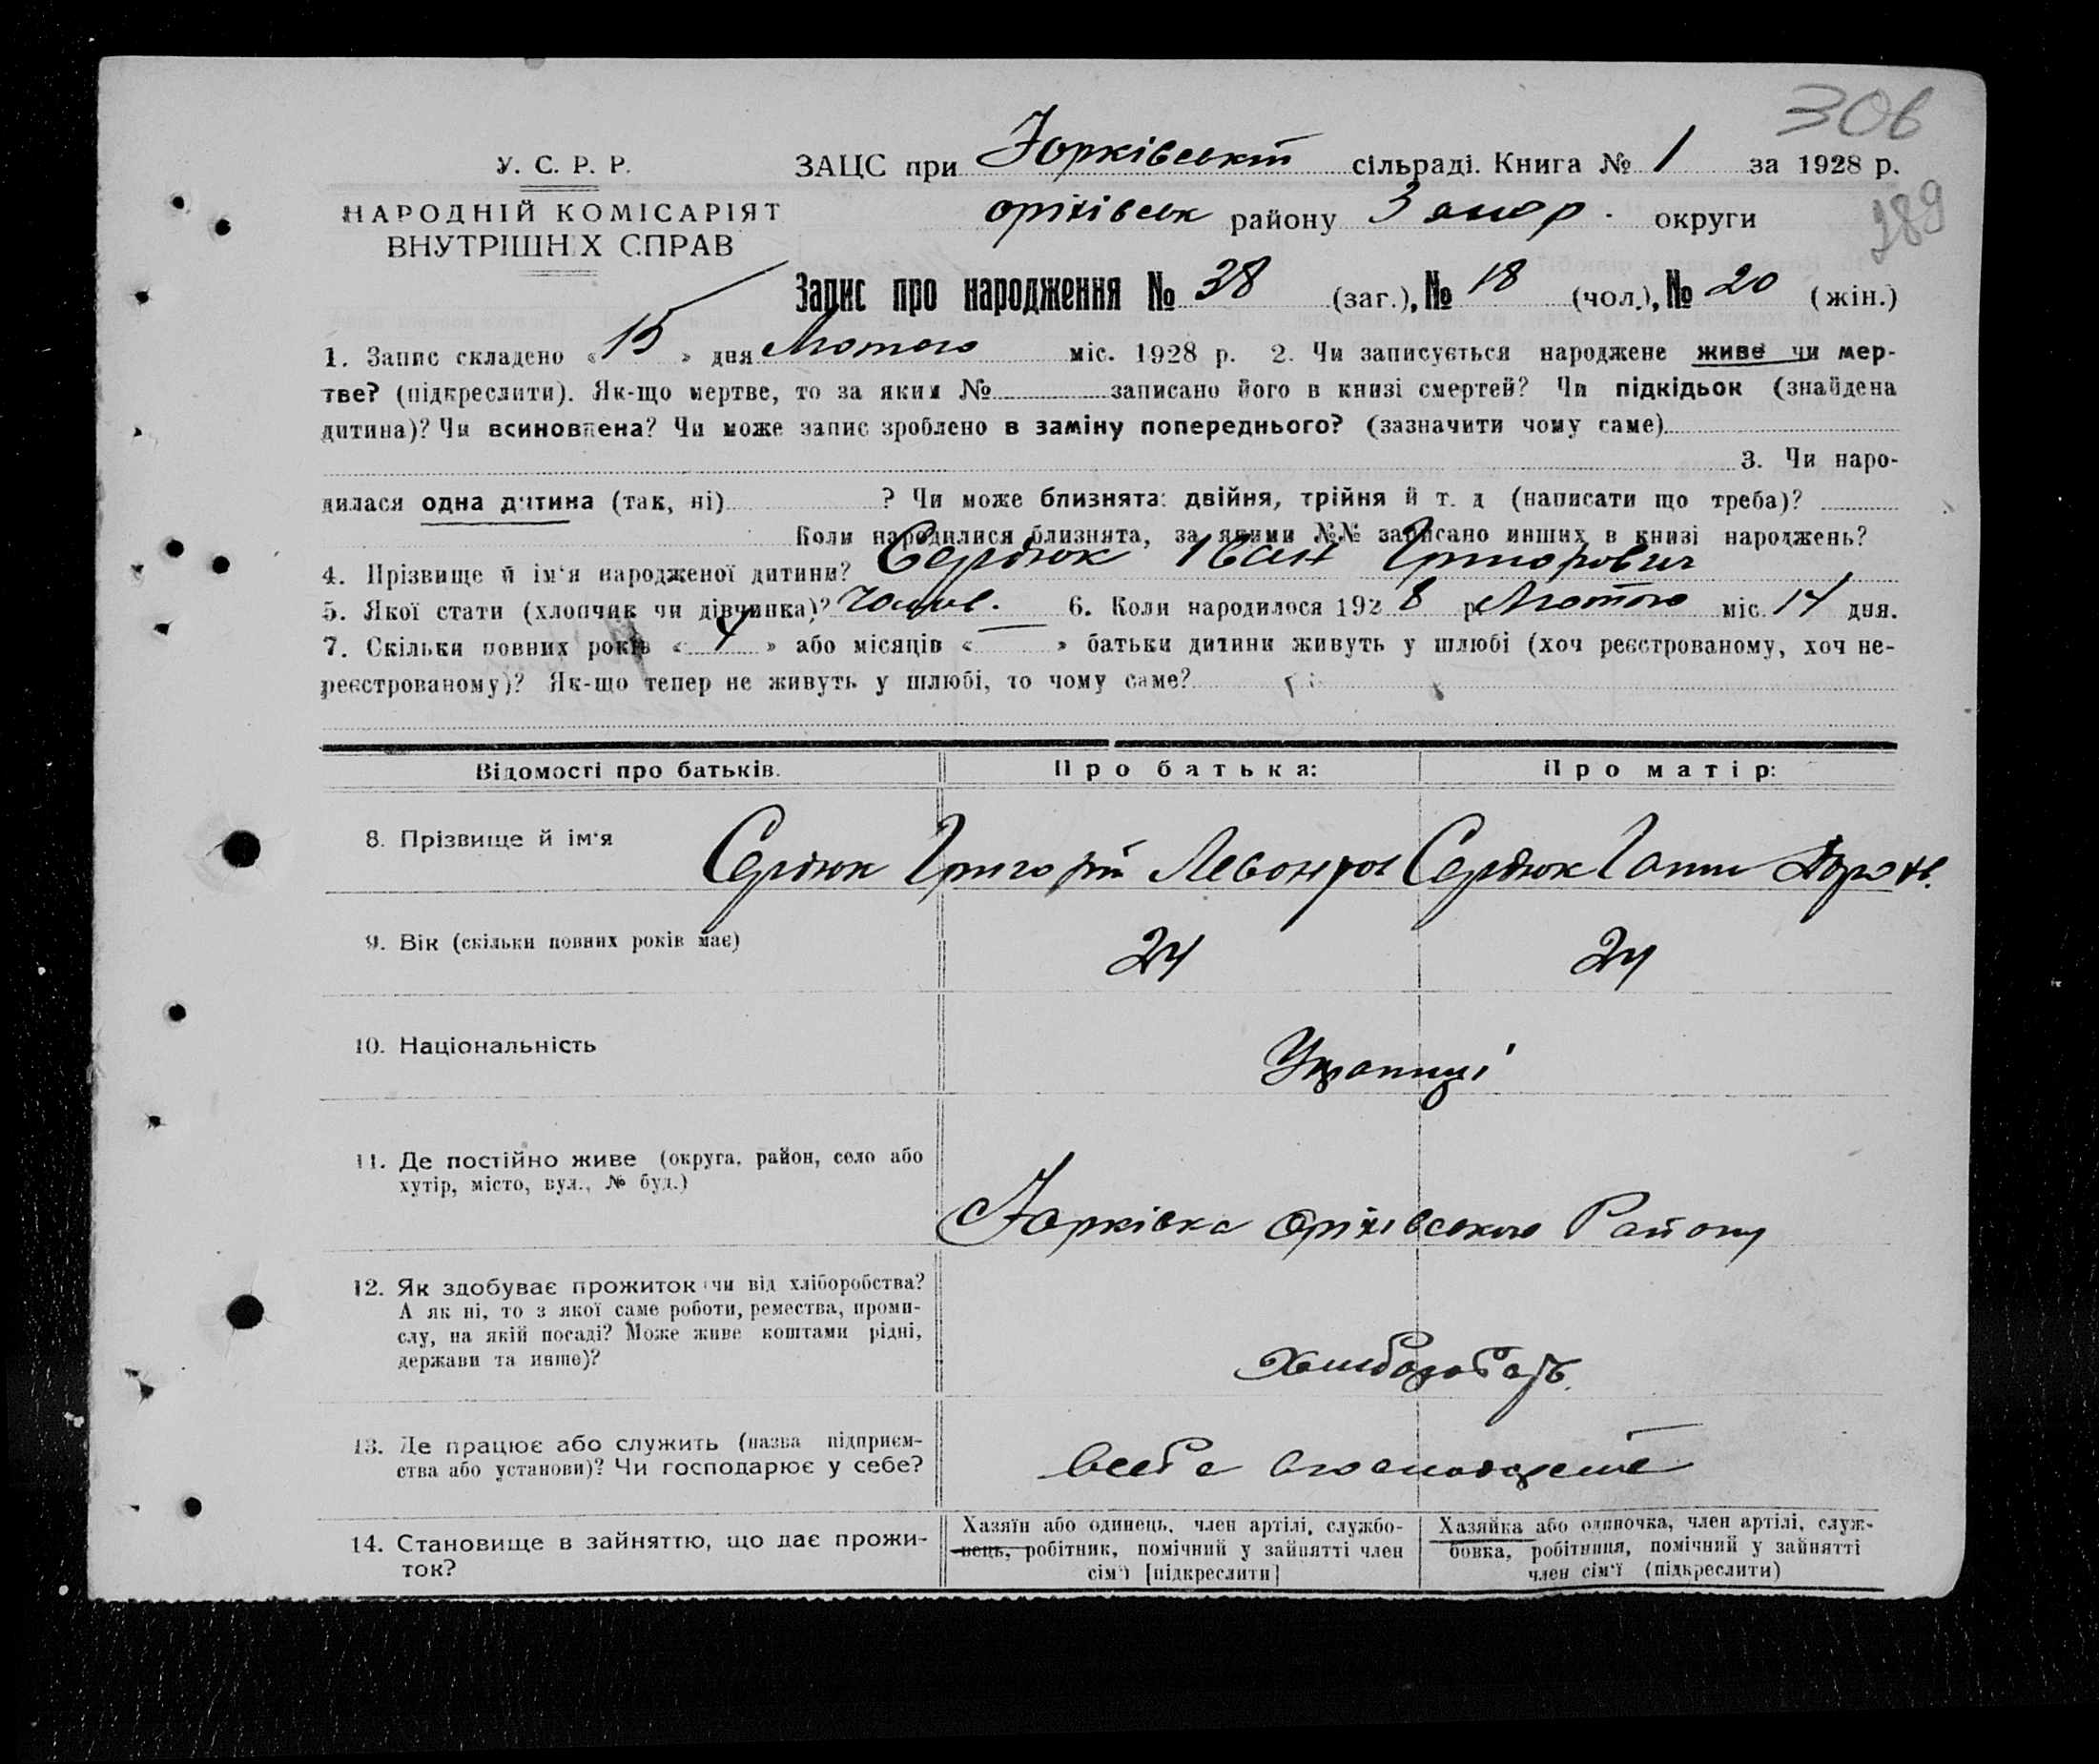 306
У. С. Р. Р.
ЗАЦС при Юрківській сільраді. Книга № 1 за 1928 р.
289
НАРОДНІЙ КОМІСАРІЯТ
ВНУТРІШНІХ СПРАВ
оріхівськ району Запор. округи
Запис про народження № 38 (заг.), № 18 (чол.), № 20 (жін.)
1. Запис складено «15» дня Лютого міс. 1928 р. 2. Чи записується народжене живе чи мер-
тве? (підкреслити). Як-що мертве, то за яким № записано його в книзі смертей? Чи підкідьок (знайдена
дитина)? Чи всиновлена? Чи може запис зроблено в заміну попереднього? (зазначити чому саме)
3. Чи наро-
дилася одна дитина (так, ні) ? Чи може близнята: двійня, трійня й т. д (написати що треба)?
Коли народилися близнята, за якими №№ записано инших в книзі народжень?
4. Прізвище й ім'я народженої дитини? Сердюк Іван Григорович
5. Якої стати (хлопчик чи дівчинка)? 6. Коли народилося 1928 р. Лютого міс. 14 дня.
7. Скільки повних років « 4 » або місяців « — » батьки дитини живуть у шлюбі (хоч реєстрованому, хоч не-
реєстрованому)? Як-що тепер не живуть у шлюбі, то чому саме?
Відомості про батьків. Про батька: Про матір:
8. Прізвище й ім'я Сердюк Григорій Сердюк Ганна
9. Вік (скільки повних років має) 24 24
10. Національність Українці
11. Де постійно живе (округа, район, село або
хутір, місто, вул., № буд.)
Юрківка Оріхівського Району
12. Як здобуває прожиток чи від хліборобства?
А як ні, то з якої саме роботи, ремества, проми-
слу, на якій посаді? Може живе коштами рідні,
держави та инше)?
13. Де працює або служить (назва підприєм-
ства або установи)? Чи господарює у себе?
всебе
14. Становище в зайняттю, що дає прожи-
ток?
Хазяїн або одинець, член артілі, службо-
вець, робітник, помічний у зайнятті член
сім'ї [підкреслити]
Хазяйка або одиночка, член артілі, служ-
бовка, робітниця, помічний у зайнятті
член сім'ї (підкреслити)